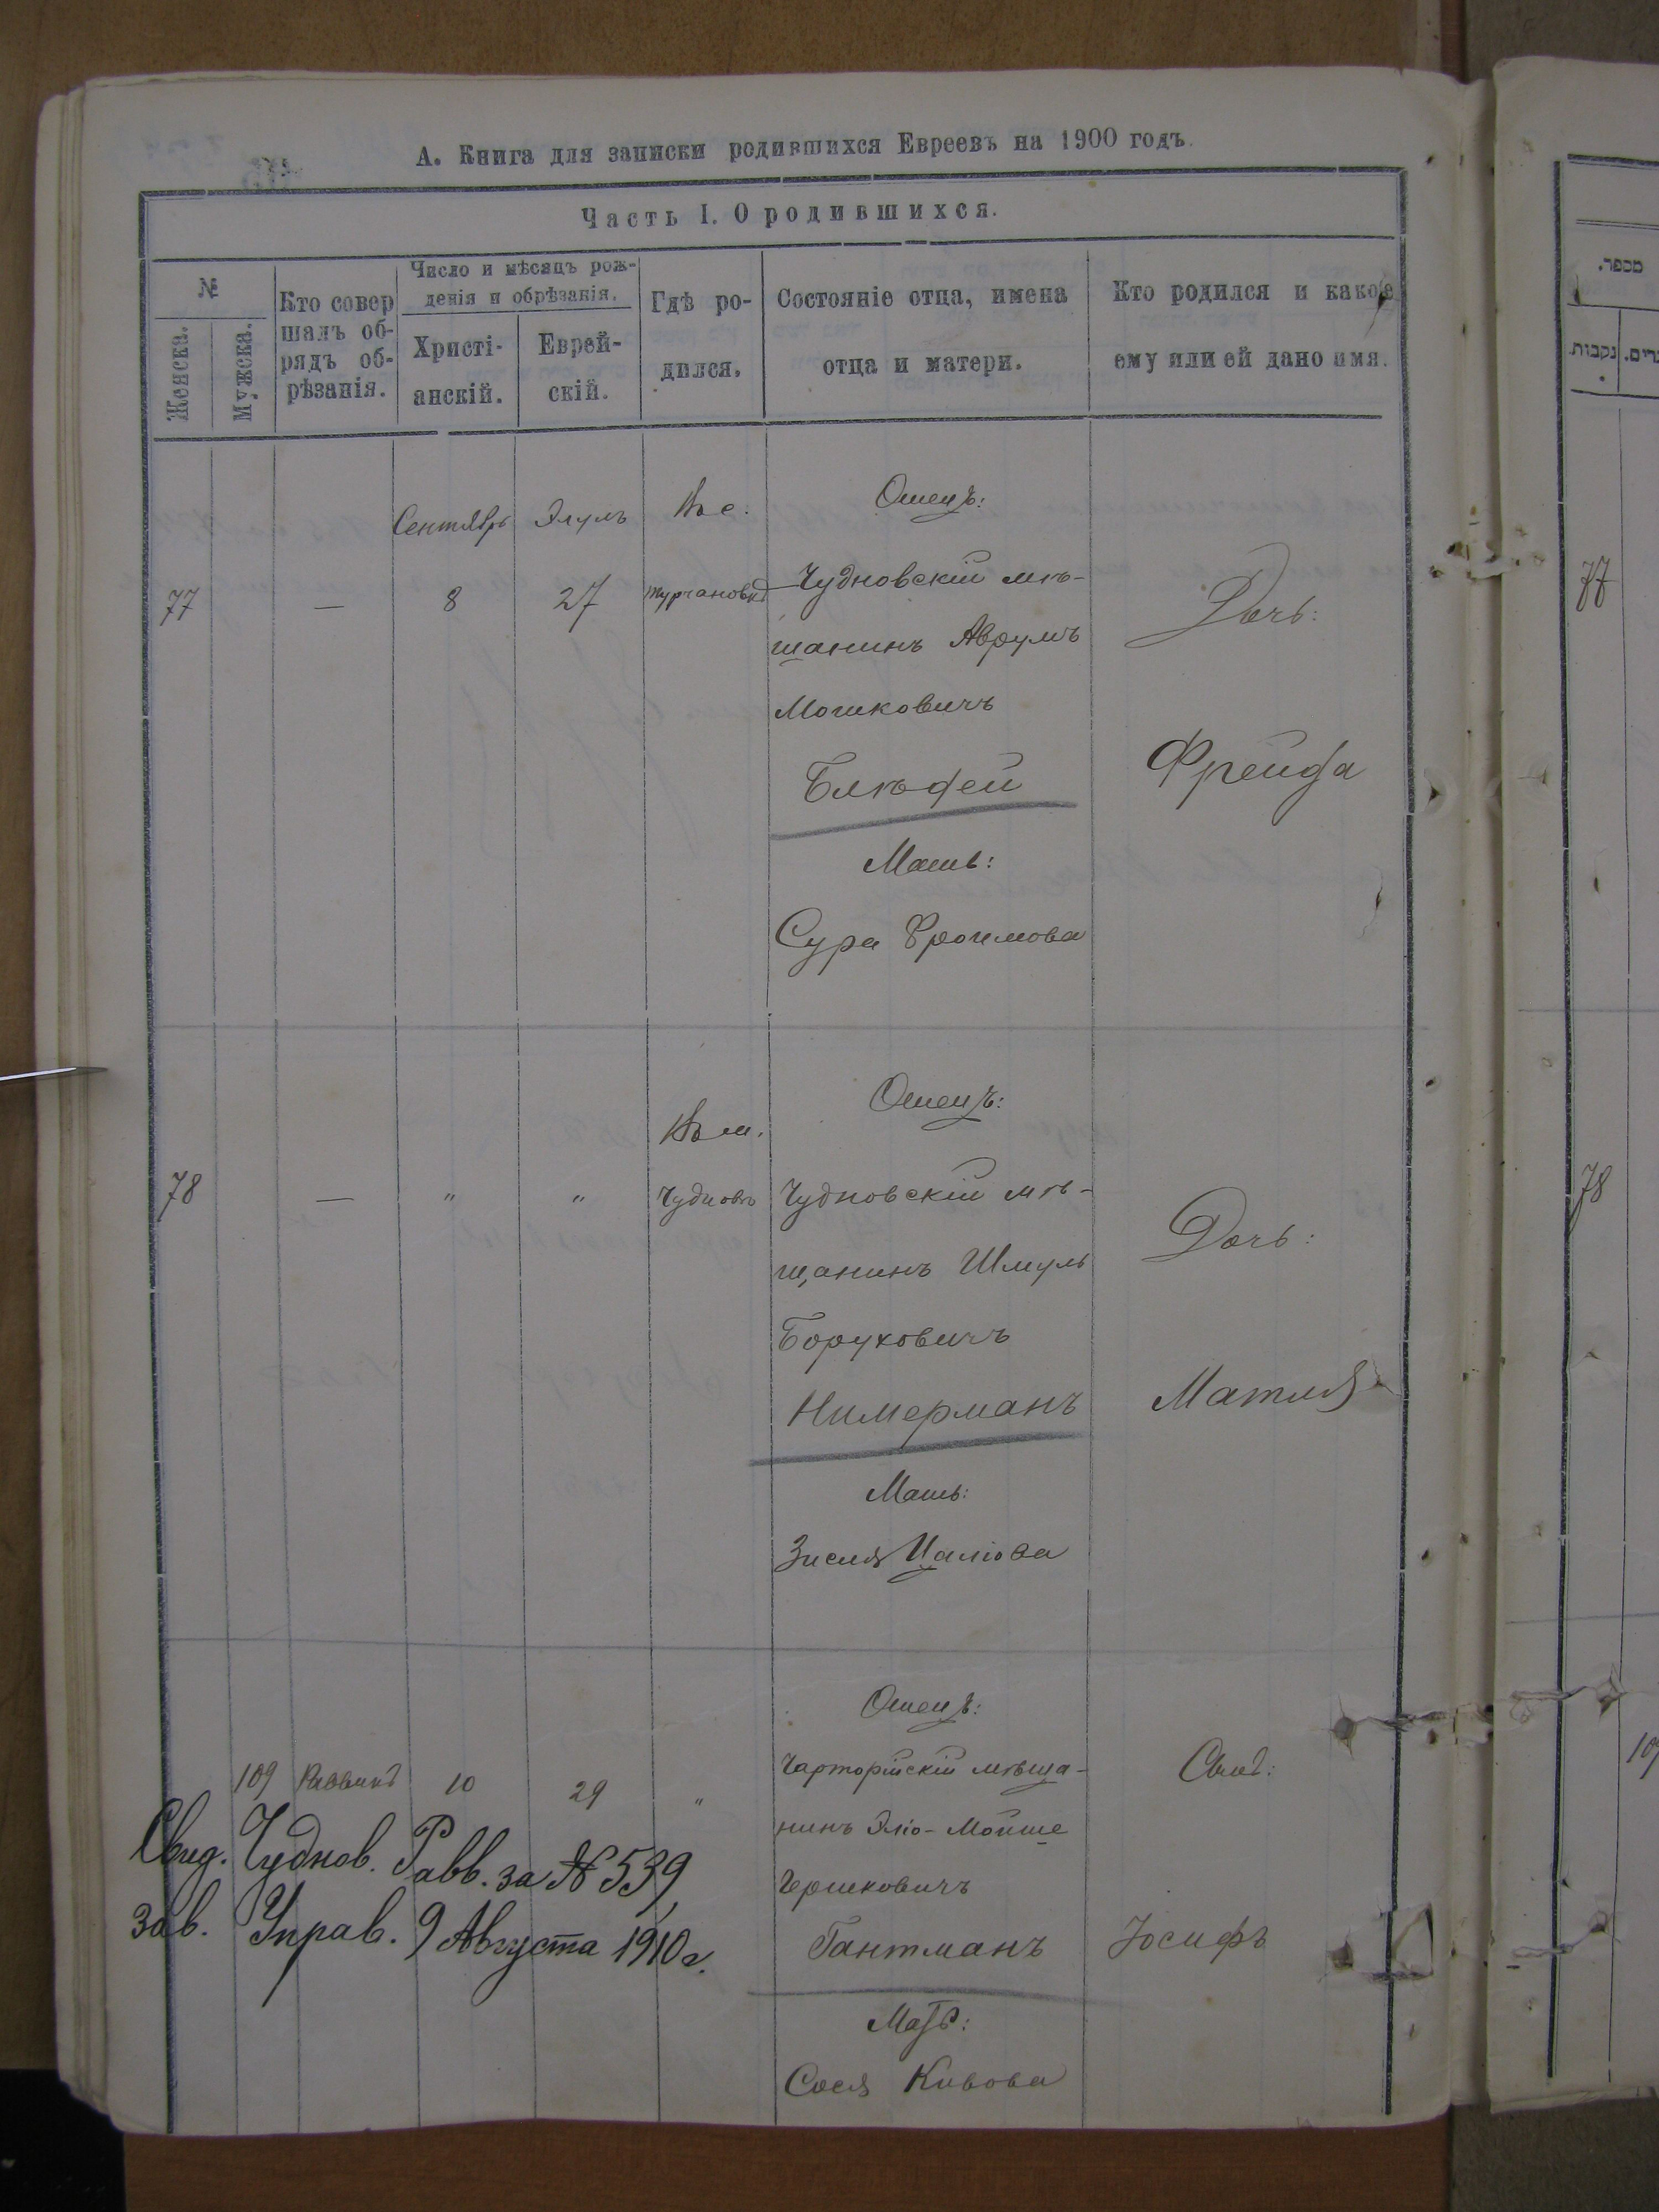 А. Книга для записки родившихся Евреевъ на 1900 годъ.
Часть I. О родившихся.
№
Женска.
Мужска.
Кто совер
шалъ об-
рядъ об-
рѣзанія.
Число и мѣсяцъ рож-
денія и обрѣзанія.
Христі-
анскій.
Еврей-
скій.
Гдѣ ро-
дился.
Состояніе отца, имена
отца и матери.
Кто родился и какое
ему или ей дано имя.
77
—
Сентябрь
8
Элулъ
27
Въ с.
Отецъ:
Чудновскій мѣ-
щанинъ Аврумъ
Мошковичъ
Мать:
Сура Фроимова
Дочь:
Фрейда
78
—
"
"
Въ м.
Чудновъ
Отецъ:
Чудновскій мѣ-
щанинъ Шмуль
Боруховичъ
Нимерманъ
Мать:
Зисля Цаліова
Дочь:
Матля
109
Раввинъ
10
29
"
Отецъ:
Чарторійскій мѣща-
нинъ Эліо-Мойше
Гершковичъ
Гантманъ
Мать:
Сося Кивова
Сынъ:
Іосифъ
Свид. Чуднов. Равв. за № 539,
зав. Управ. 9 Августа 1910 г.
מספר.
נקבות.
77
78
109